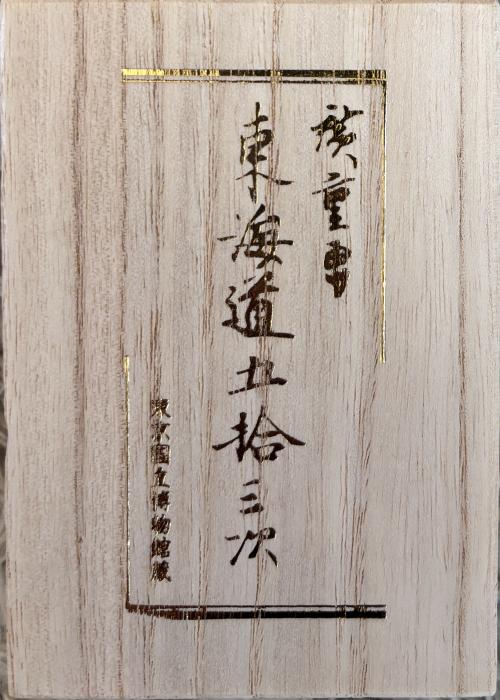 廣重畫
東海道五拾三次
東京國立博物館蔵